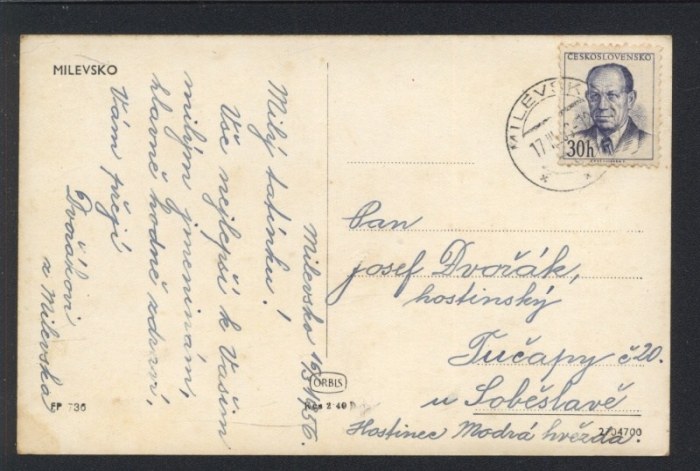 MILEVSKO
Milevsko 16/3 1956.
Milý tatínku!
Vše nejlepší k Vašim
milým jmeninám,
hlavně hodně zdraví,
Vám přejí
Dvořákovi
z Milevska
FP 736
ORBIS
Kčs 2·40
ČESKOSLOVENSKO
30h
MILEVSKO
17.III.56
Pan
Josef Dvořák,
hostinský
Tučapy č20.
u Soběslavě
Hostinec Modrá hvězda.
2/04700